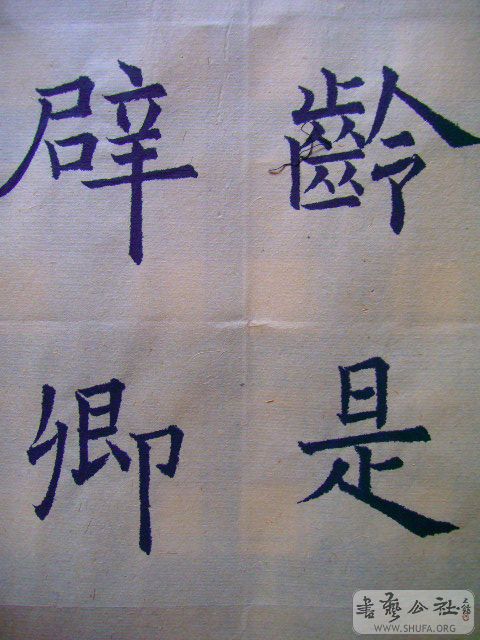 齡是
辟卿
書藝公社
WWW.SHUFA.ORG